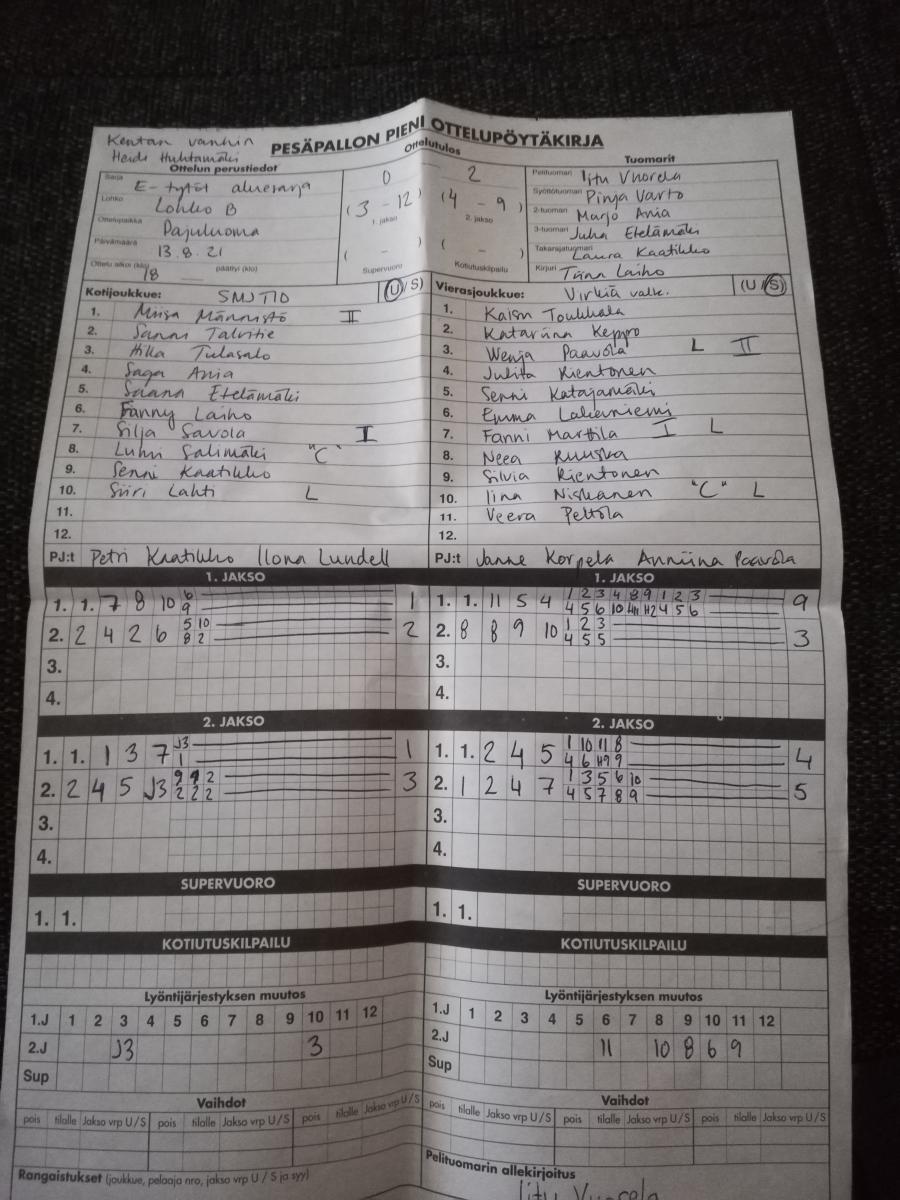 Kentän vanhin
Heidi Huhtamäki
PESÄPALLON PIENI OTTELUPÖYTÄKIRJA
Ottelun perustiedot
Ottelutulos
Tuomarit
Sarja E-tytöt aluesarja
Lohko Lohko B
Ottelupaikka Pajuluoma
Päivämäärä 13.8.21
Ottelu alkoi (klo) 18 päättyi (klo)
0 2
(3 - 12) (4 - 9)
1. jakso 2. jakso
( - ) ( - )
Supervuoro Kotiutuskilpailu
Pelituomari Iitu Vuorela
Syöttötuomari Pinja Varto
2-tuomari Marjo Ania
3-tuomari Juha Etelämäki
Takarajatuomari Laura Kaatikko
Kirjuri Tiina Laiho
Kotijoukkue: SMJ T10 (U/S)
1. Miisa Männistö II
2. Sanni Talvitie
3. Hilka Tulasalo
4. Saga Ania
5. Saana Etelämäki
6. Fanny Laiho
7. Silja Savola I
8. Lumi Salimäki "C"
9. Senni Kaatikko
10. Siiri Lahti L
11.
12.
PJ:t Petri Kaatikko Ilona Lundell
Vierasjoukkue: Virkiä valk. (U/S)
1. Kaisu Toukkala
2. Katariina Keppo
3. Wenja Paavola L II
4. Julita Rientonen
5. Senni Katajamäki
6. Emma Lakaniemi
7. Fanni Marttila I L
8. Neea Ruuska
9. Silvia Rientonen
10. Iina Niskanen "C" L
11. Veera Peltola
12.
PJ:t Janne Korpela Anniina Paavola
1. JAKSO
1. 1. 7 8 10 6 1
9
2. 2 4 2 6 5 10 2
8 2
3.
4.
1. JAKSO
1. 1. 11 5 4 1 2 3 4 8 9 1 2 3 9
4 5 6 10 4H H2 4 5 6
2. 8 8 9 10 1 2 3 3
4 5 5
3.
4.
2. JAKSO
1. 1. 1 3 7 J3 1
1
2. 2 4 5 J3 9 9 2 3
2 2 2
3.
4.
2. JAKSO
1. 1. 2 4 5 1 10 11 8 4
4 6 H9 9
2. 1 2 4 7 1 3 5 6 10 5
4 5 7 8 9
3.
4.
SUPERVUORO
1. 1.
SUPERVUORO
1. 1.
KOTIUTUSKILPAILU
KOTIUTUSKILPAILU
Lyöntijärjestyksen muutos
1.J 1 2 3 4 5 6 7 8 9 10 11 12
2.J J3 3
Sup
Lyöntijärjestyksen muutos
1.J 1 2 3 4 5 6 7 8 9 10 11 12
2.J 11 10 8 6 9
Sup
Vaihdot
pois tilalle Jakso vrp U/S pois tilalle Jakso vrp U/S pois tilalle Jakso vrp U/S
Vaihdot
pois tilalle Jakso vrp U/S pois tilalle Jakso vrp U/S pois tilalle Jakso vrp U/S
Rangaistukset (joukkue, pelaaja nro, jakso vrp U / S ja syy)
Pelituomarin allekirjoitus
Iitu Vuorela